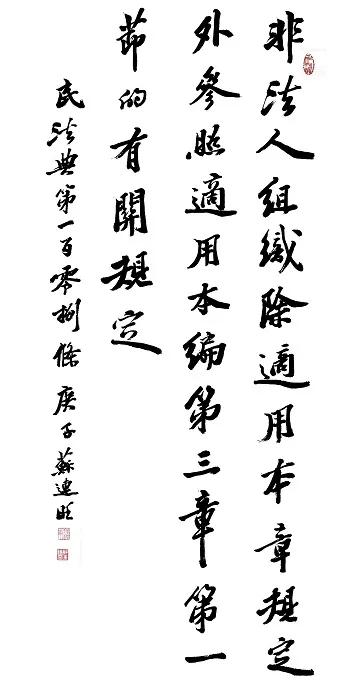 非法人組織除適用本章規定
外參照適用本編第三章第一
節的有關規定
民法典第一百零捌條 庚子 蘇建明